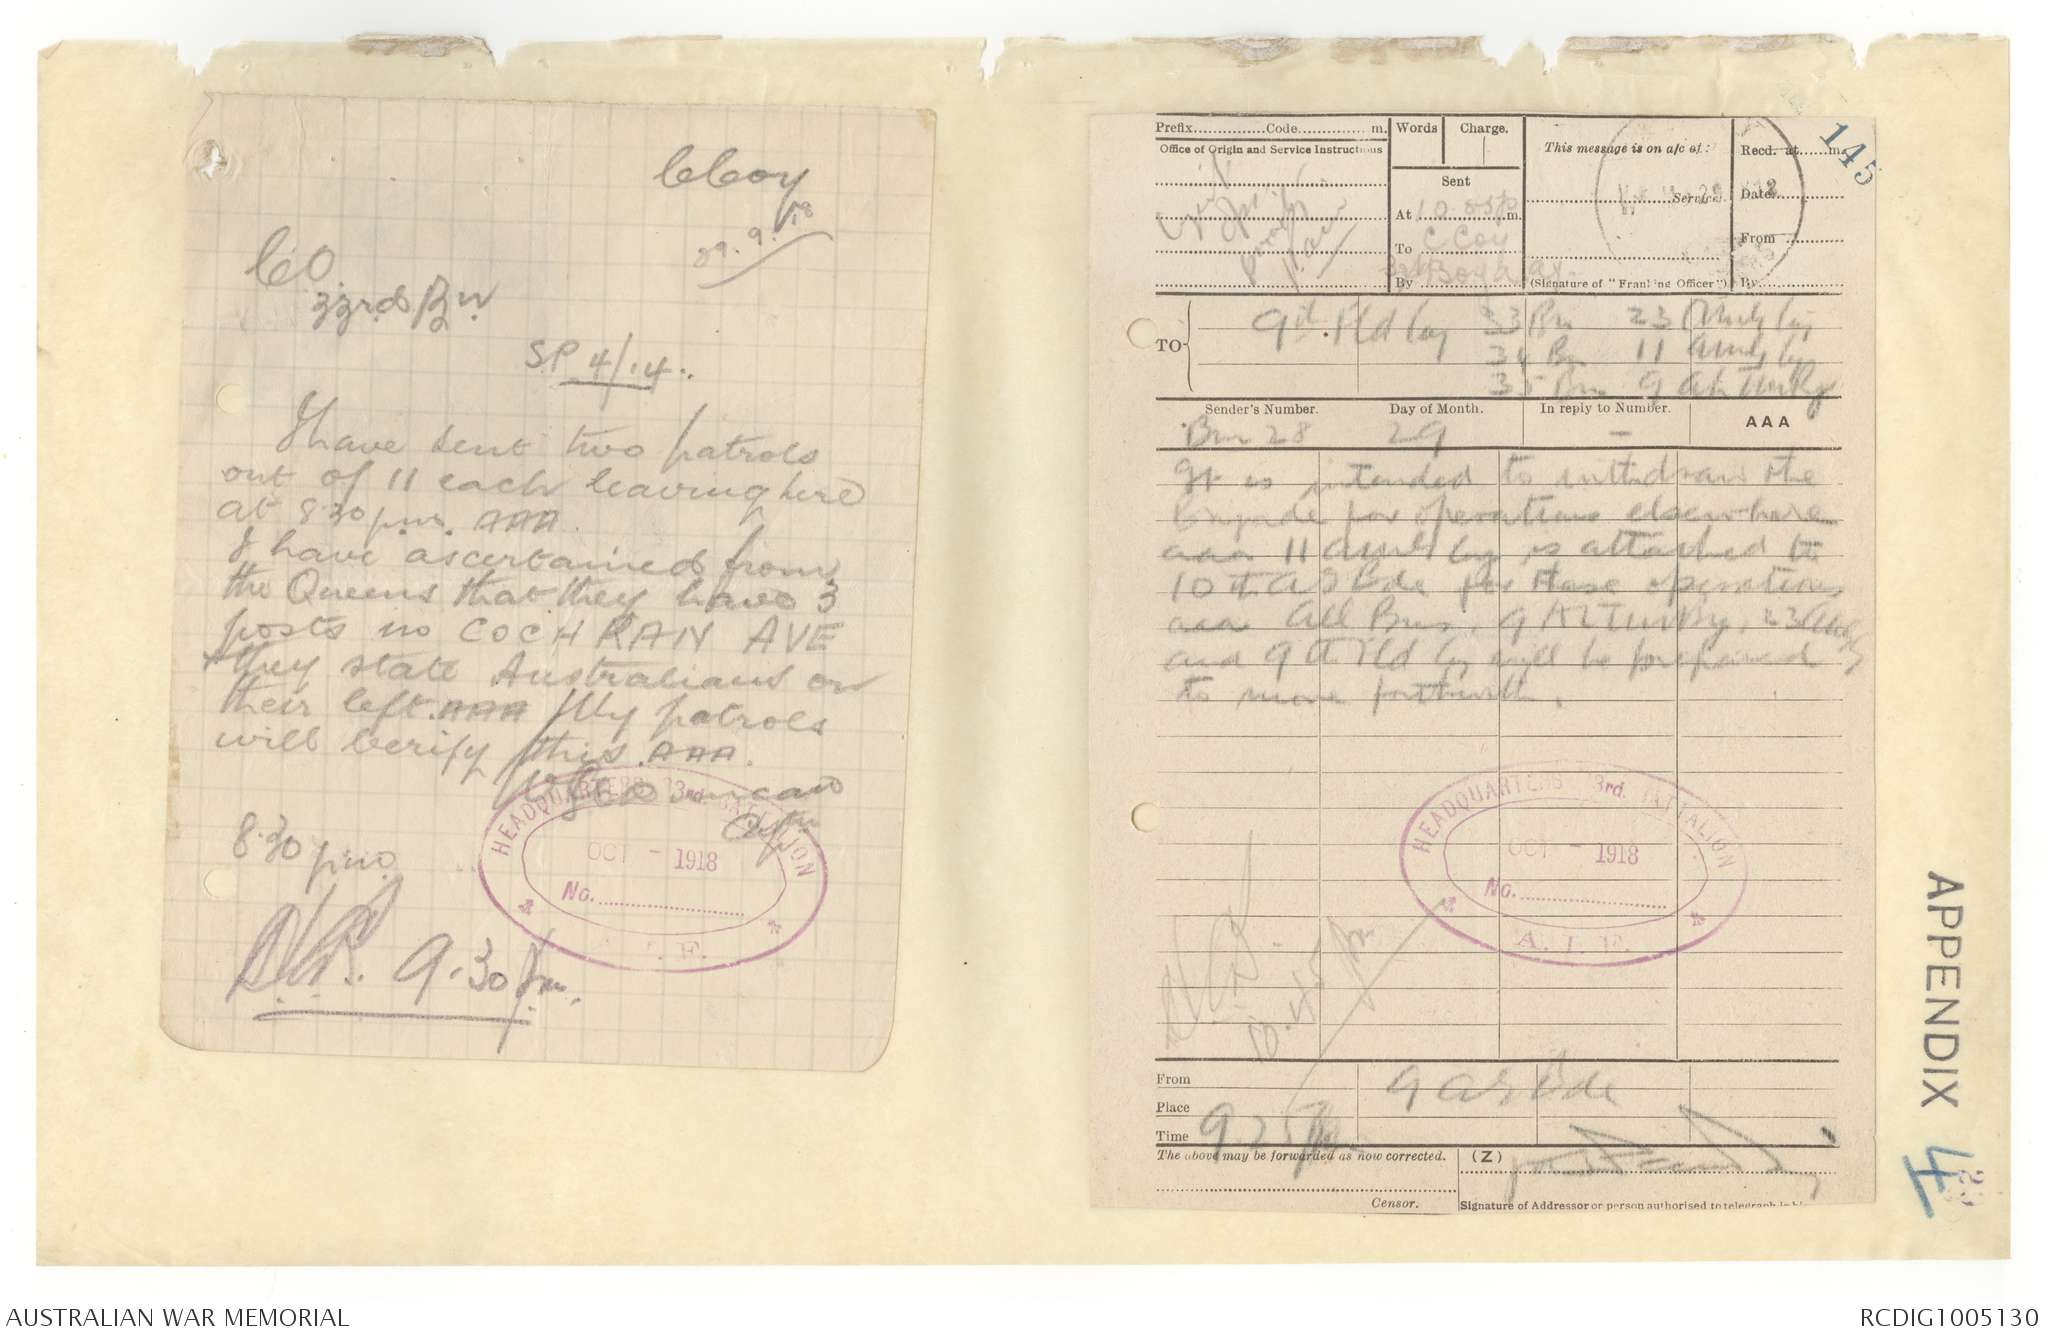 C Coy
29.9.18
C.O.
33rd Bn
SP 4/14.
I have sent two patrols
out of 11 each leaving here
at 8.30 p.m. AAA.
I have ascertained from
the Queens that they have 3
posts in COCHRAN AVE
+ they state Australians on
their left. AAA My patrols
will verify this. AAA.
Duncan
Capt
8.30 pm
9.30 pm.
HEADQUARTERS 33rd. BATTALION
OCT - 1918
No.
A. I. F.
145
Prefix Code m. Words Charge. This message is on a/c of: Recd. at m.
Office of Origin and Service Instructions
Sent
Service. Date
At 10.05 p m.
To C Coy From
By (Signature of "Franking Officer") By
TO 9th Fld Coy 33 Bn 23 Amb Coy
34 Bn 11 Amb Coy
35 Bn 9 ALTM By
Sender's Number. Day of Month. In reply to Number. AAA
Bm 28 29 -
It is intended to withdraw the
Brigade for operations elsewhere
aaa 11 Amb Coy is attached to
10th AI Bde for these operations
aaa All Bns, 9 ALTM By, 23
and 9th Fld Coy will be prepared
to move forthwith.
HEADQUARTERS 33rd. BATTALION
OCT - 1918
No.
A. I. F.
10.45 pm
From 9 AI Bde
Place
Time 9.25 pm
The above may be forwarded as now corrected. (Z)
Censor. Signature of Addressor or person authorised to telegraph in his
APPENDIX 4
AUSTRALIAN WAR MEMORIAL
RCDIG1005130